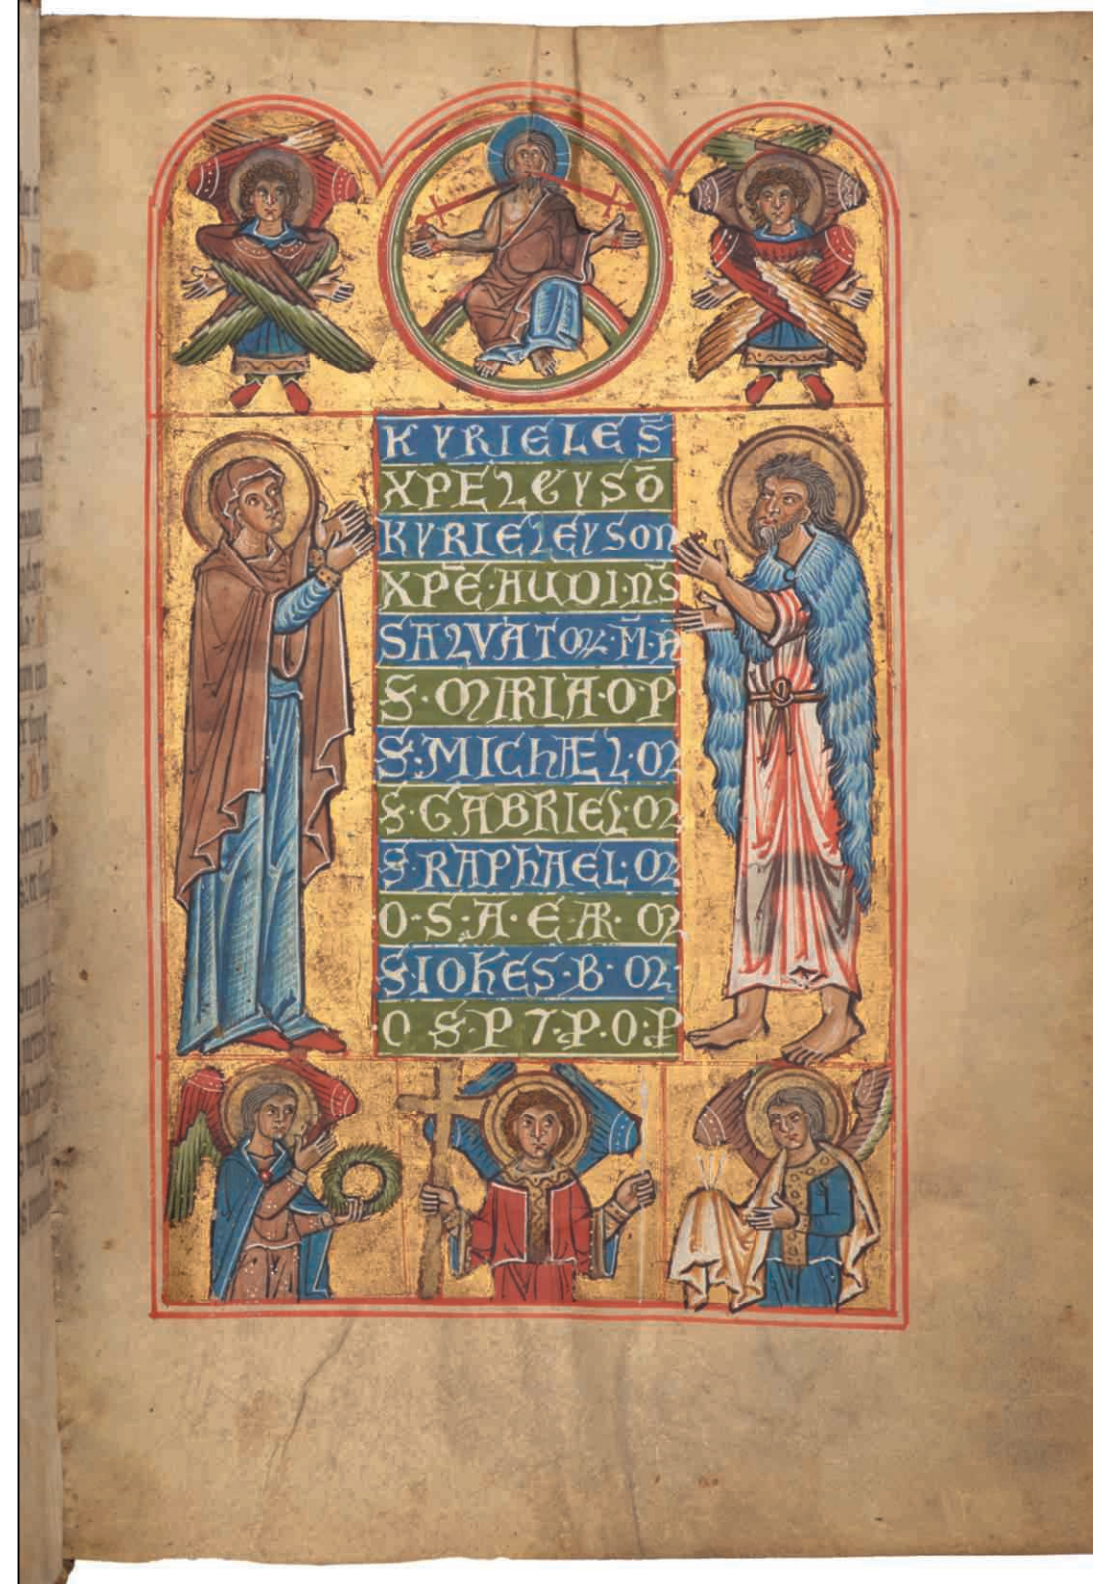 KYRIELES̄
XPELEYSŌ
KYRIELEYSON
XPĒ·AUDI·N̄S
SALVATOR·M̄·A
S·MARIA·O·P
S·MICHAEL·OR
S·GABRIEL·OR
S·RAPHAEL·OR
O·S·A·E·AR·OR
S·IOHES·B·OR·
O S·P 7·P·O·P